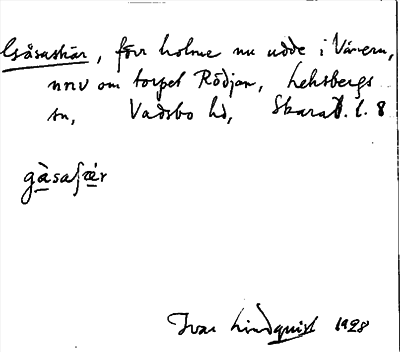 Gåsaskär, förr holme nu udde i Vänern,
nnv om torpet Rödjan, Leksbergs
sn, Vadsbo hd, Skarab. l. 8
gàsaʃǽr
Ivar Lindquist 1928